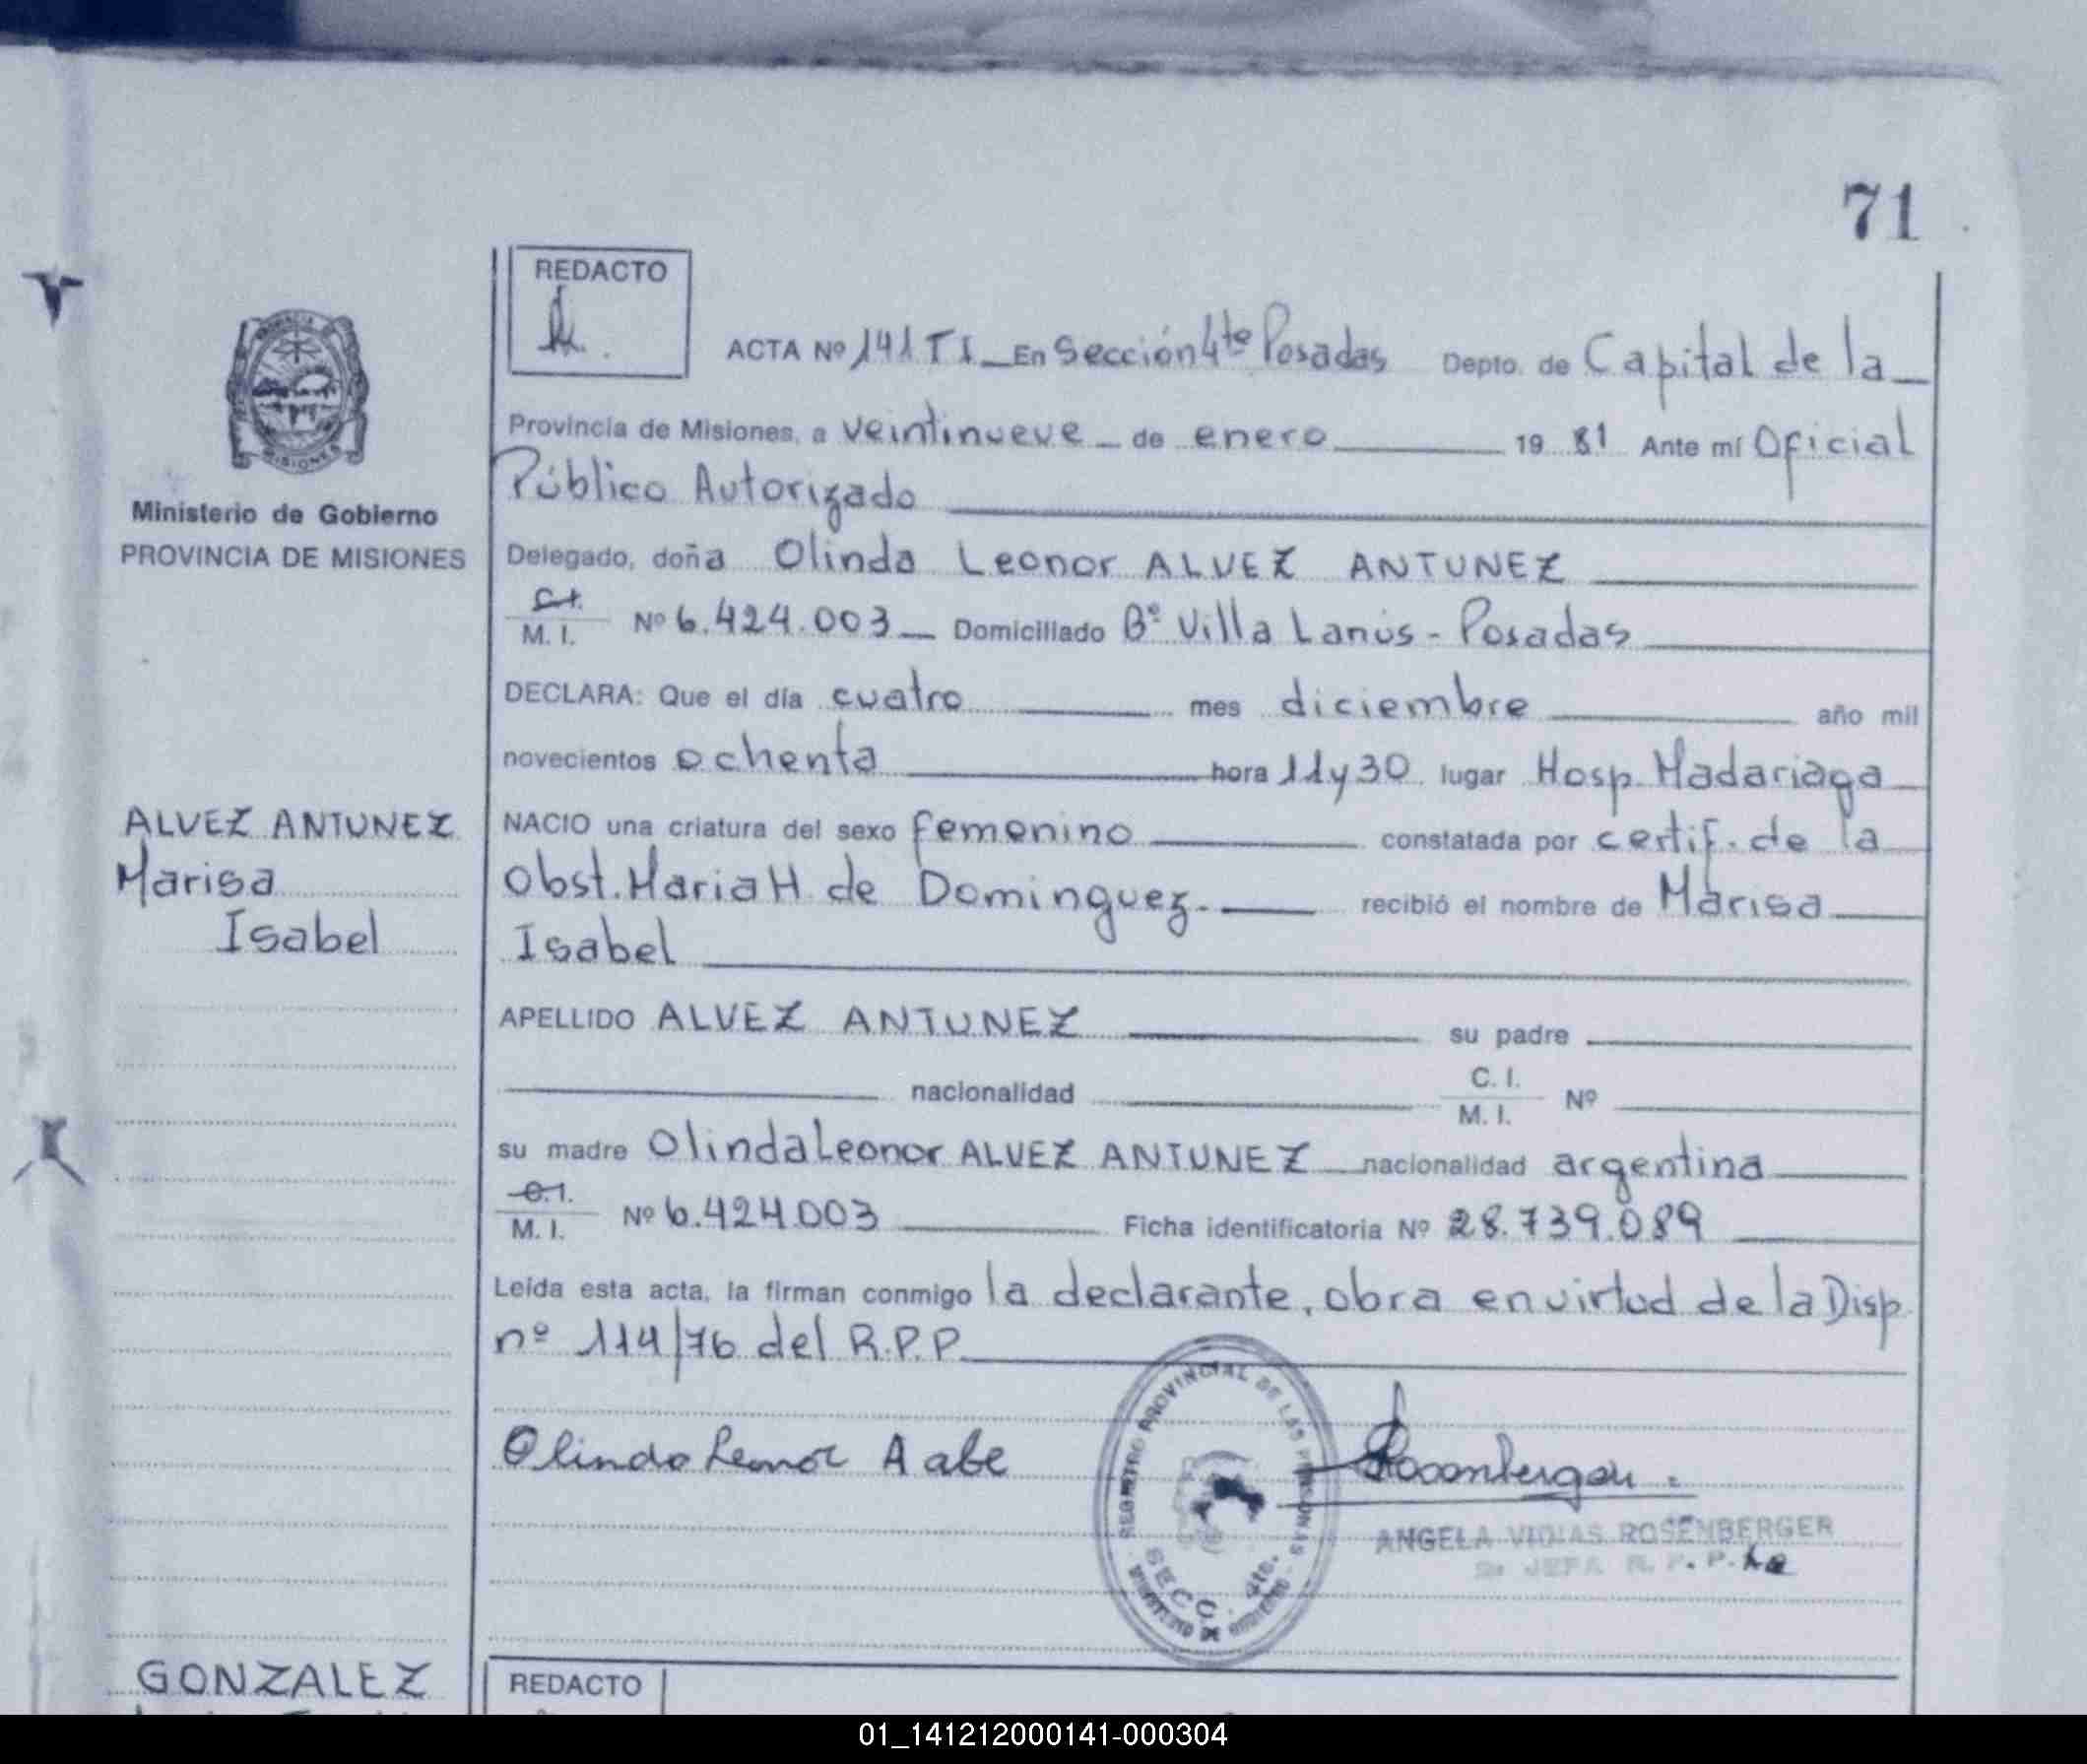 71
REDACTO
ACTA Nº 141 T I En Sección 4ta Posadas Depto. de Capital de la
Provincia de Misiones, a veintinueve de enero 19 81 Ante mí Oficial
Público Autorizado
Ministerio de Gobierno
PROVINCIA DE MISIONES
Delegado, doña Olinda Leonor ALVEZ ANTUNEZ
C.I.
M. I. Nº 6.424.003 Domiciliado Bº Villa Lanús - Posadas
DECLARA: Que el día cuatro mes diciembre año mil
novecientos ochenta hora 11y30 lugar Hosp. Madariaga
ALVEZ ANTUNEZ
Marisa
Isabel
NACIO una criatura del sexo femenino constatada por certif. de la
Obst. Maria H de Dominguez. recibió el nombre de Marisa
Isabel
APELLIDO ALVEZ ANTUNEZ su padre
nacionalidad C. I.
M. I. Nº
su madre Olinda Leonor ALVEZ ANTUNEZ nacionalidad argentina
C.I.
M. I. Nº 6.424.003 Ficha identificatoria Nº 28.739.089
Leída esta acta, la firman conmigo la declarante, obra en virtud de la Disp
nº 114/76 del R.P.P.
REGISTRO PROVINCIAL DE LAS PERSONAS
SECC. 4ta.
MINISTERIO DE GOBIERNO
Olinda Leonor A
Rosenberger
ANGELA VIDIAS ROSENBERGER
JEFA R. P. P.
GONZALEZ
REDACTO
01_141212000141-000304